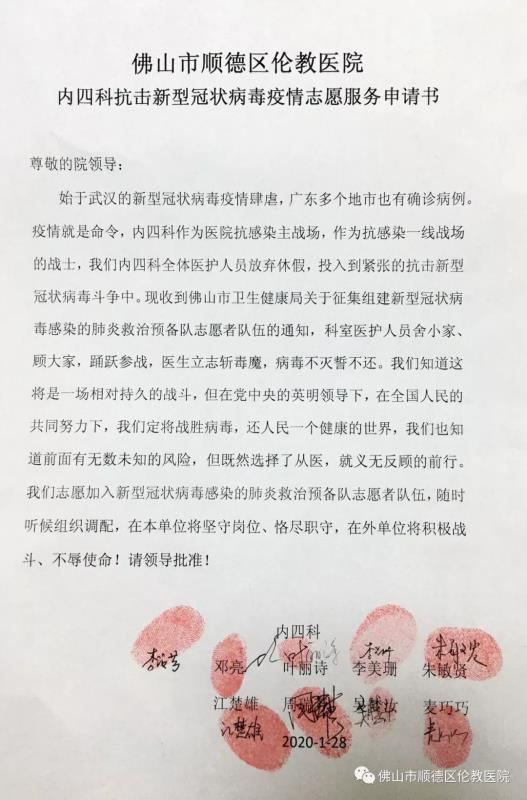 佛山市顺德区伦教医院
内四科抗击新型冠状病毒疫情志愿服务申请书
尊敬的院领导：
始于武汉的新型冠状病毒疫情肆虐，广东多个地市也有确诊病例。
疫情就是命令，内四科作为医院抗感染主战场，作为抗感染一线战场
的战士，我们内四科全体医护人员放弃休假，投入到紧张的抗击新型
冠状病毒斗争中。现收到佛山市卫生健康局关于征集组建新型冠状病
毒感染的肺炎救治预备队志愿者队伍的通知，科室医护人员舍小家、
顾大家，踊跃参战，医生立志斩毒魔，病毒不灭誓不还。我们知道这
将是一场相对持久的战斗，但在党中央的英明领导下，在全国人民的
共同努力下，我们定将战胜病毒，还人民一个健康的世界，我们也知
道前面有无数未知的风险，但既然选择了从医，就义无反顾的前行。
我们志愿加入新型冠状病毒感染的肺炎救治预备队志愿者队伍，随时
听候组织调配，在本单位将坚守岗位、恪尽职守，在外单位将积极战
斗、不辱使命！请领导批准！
内四科
邓亮 叶丽诗 李美珊 朱敏贤
江楚雄 周 吴 汝 麦巧巧
江楚雄
2020-1-28
佛山市顺德区伦教医院